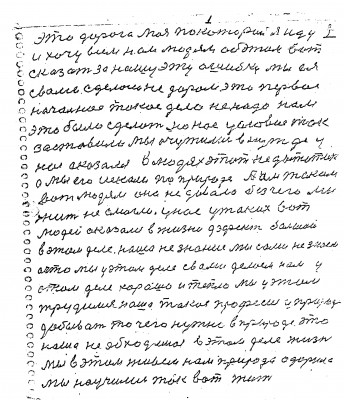 1
Это дорога моя по которой я иду 1
и хочу всем нам людям об этом вот
сказат за нашу эту ошибку мы ея
свами сделали не даром это первая
началное такое дело ненадо нам
это было сделат но нас условия так
заставили мы очутилися внужде у
нас оказался в людях этот недостаток
а мы его искали по природе Там таком
вот людям она не давала без чего мы
жит не смогли. у нас утаких вот
людей оказали в жизни дефект болшой
в этом деле. наша не знание мы сами не знаем
ото мы у этом деле свами делаем нам у
этом деле хорошо и тепло мы у этом
трудимся наша такая професия у природе
добыват то чего нужно в природе это
наша не обходимая в этом деле жизн
мы в этом живем нам природа одарила
мы научилис так вот жит